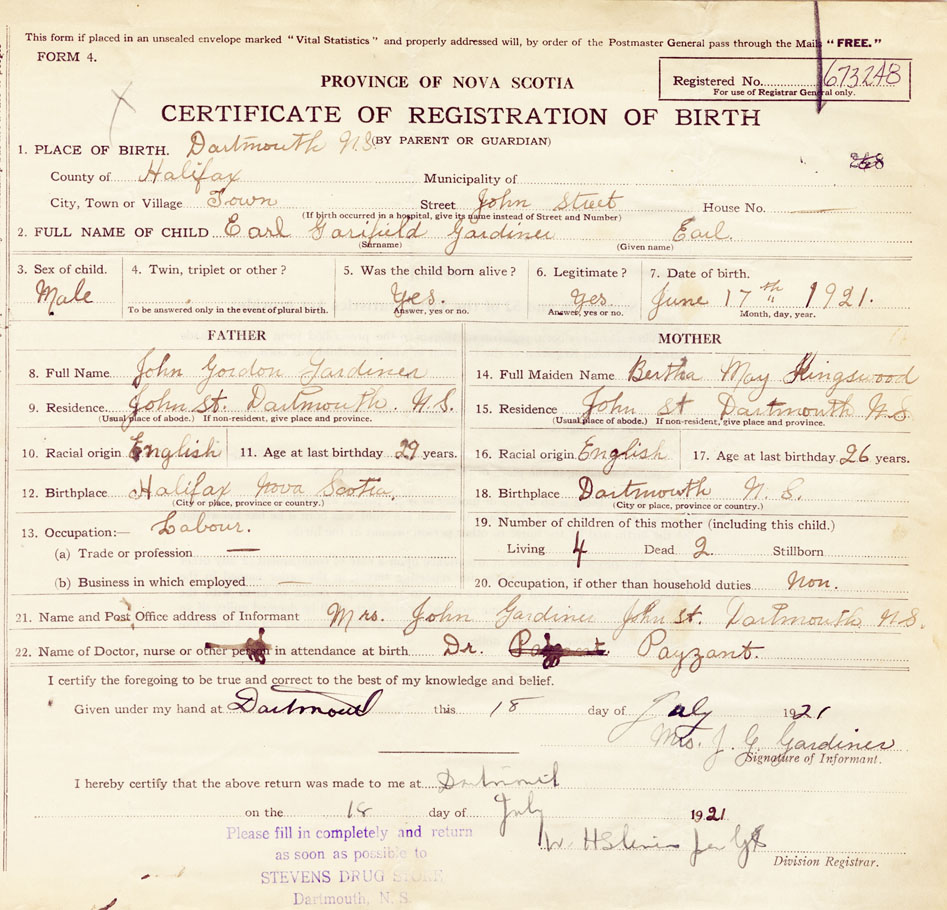 This form if placed in an unsealed envelope marked "Vital Statistics" and properly addressed will, by order of the Postmaster General pass through the Mails "FREE."
FORM 4.
PROVINCE OF NOVA SCOTIA
Registered No. 673248
For use of Registrar General only.
CERTIFICATE OF REGISTRATION OF BIRTH
(BY PARENT OR GUARDIAN)
1. PLACE OF BIRTH. Dartmouth N.S.
County of Halifax Municipality of
City, Town or Village Town Street John Street House No. —
(If birth occurred in a hospital, give its name instead of Street and Number)
2. FULL NAME OF CHILD Earl Garifield Gardiner Earl.
(Surname) (Given name)
3. Sex of child. 4. Twin, triplet or other? 5. Was the child born alive? 6. Legitimate? 7. Date of birth.
Male Yes. Yes June 17th 1921.
To be answered only in the event of plural birth. Answer, yes or no. Answer, yes or no. Month, day, year.
FATHER MOTHER
8. Full Name John Gordon Gardiner 14. Full Maiden Name Bertha May Kingswood
9. Residence. John St. Dartmouth. N.S. 15. Residence John St Dartmouth N.S
(Usual place of abode.) If non-resident, give place and province. (Usual place of abode.) If non-resident, give place and province.
10. Racial origin English 11. Age at last birthday 29 years. 16. Racial origin English 17. Age at last birthday 26 years.
12. Birthplace Halifax Nova Scotia. 18. Birthplace Dartmouth N. S.
(City or place, province or country.) (City or place, province or country.)
13. Occupation:— Labour. 19. Number of children of this mother (including this child.)
(a) Trade or profession — Living 4 Dead 2 Stillborn
(b) Business in which employed — 20. Occupation, if other than household duties Non.
21. Name and Post Office address of Informant Mrs. John Gardiner John St. Dartmouth N.S.
22. Name of Doctor, nurse or other person in attendance at birth Dr. Payzant.
I certify the foregoing to be true and correct to the best of my knowledge and belief.
Given under my hand at Dartmouth this 18 day of July 1921
Mrs. J. G. Gardiner
Signature of Informant.
I hereby certify that the above return was made to me at
on the 18 day of July 1921
Division Registrar.
Please fill in completely and return
as soon as possible to
STEVENS DRUG STORE
Dartmouth, N. S.